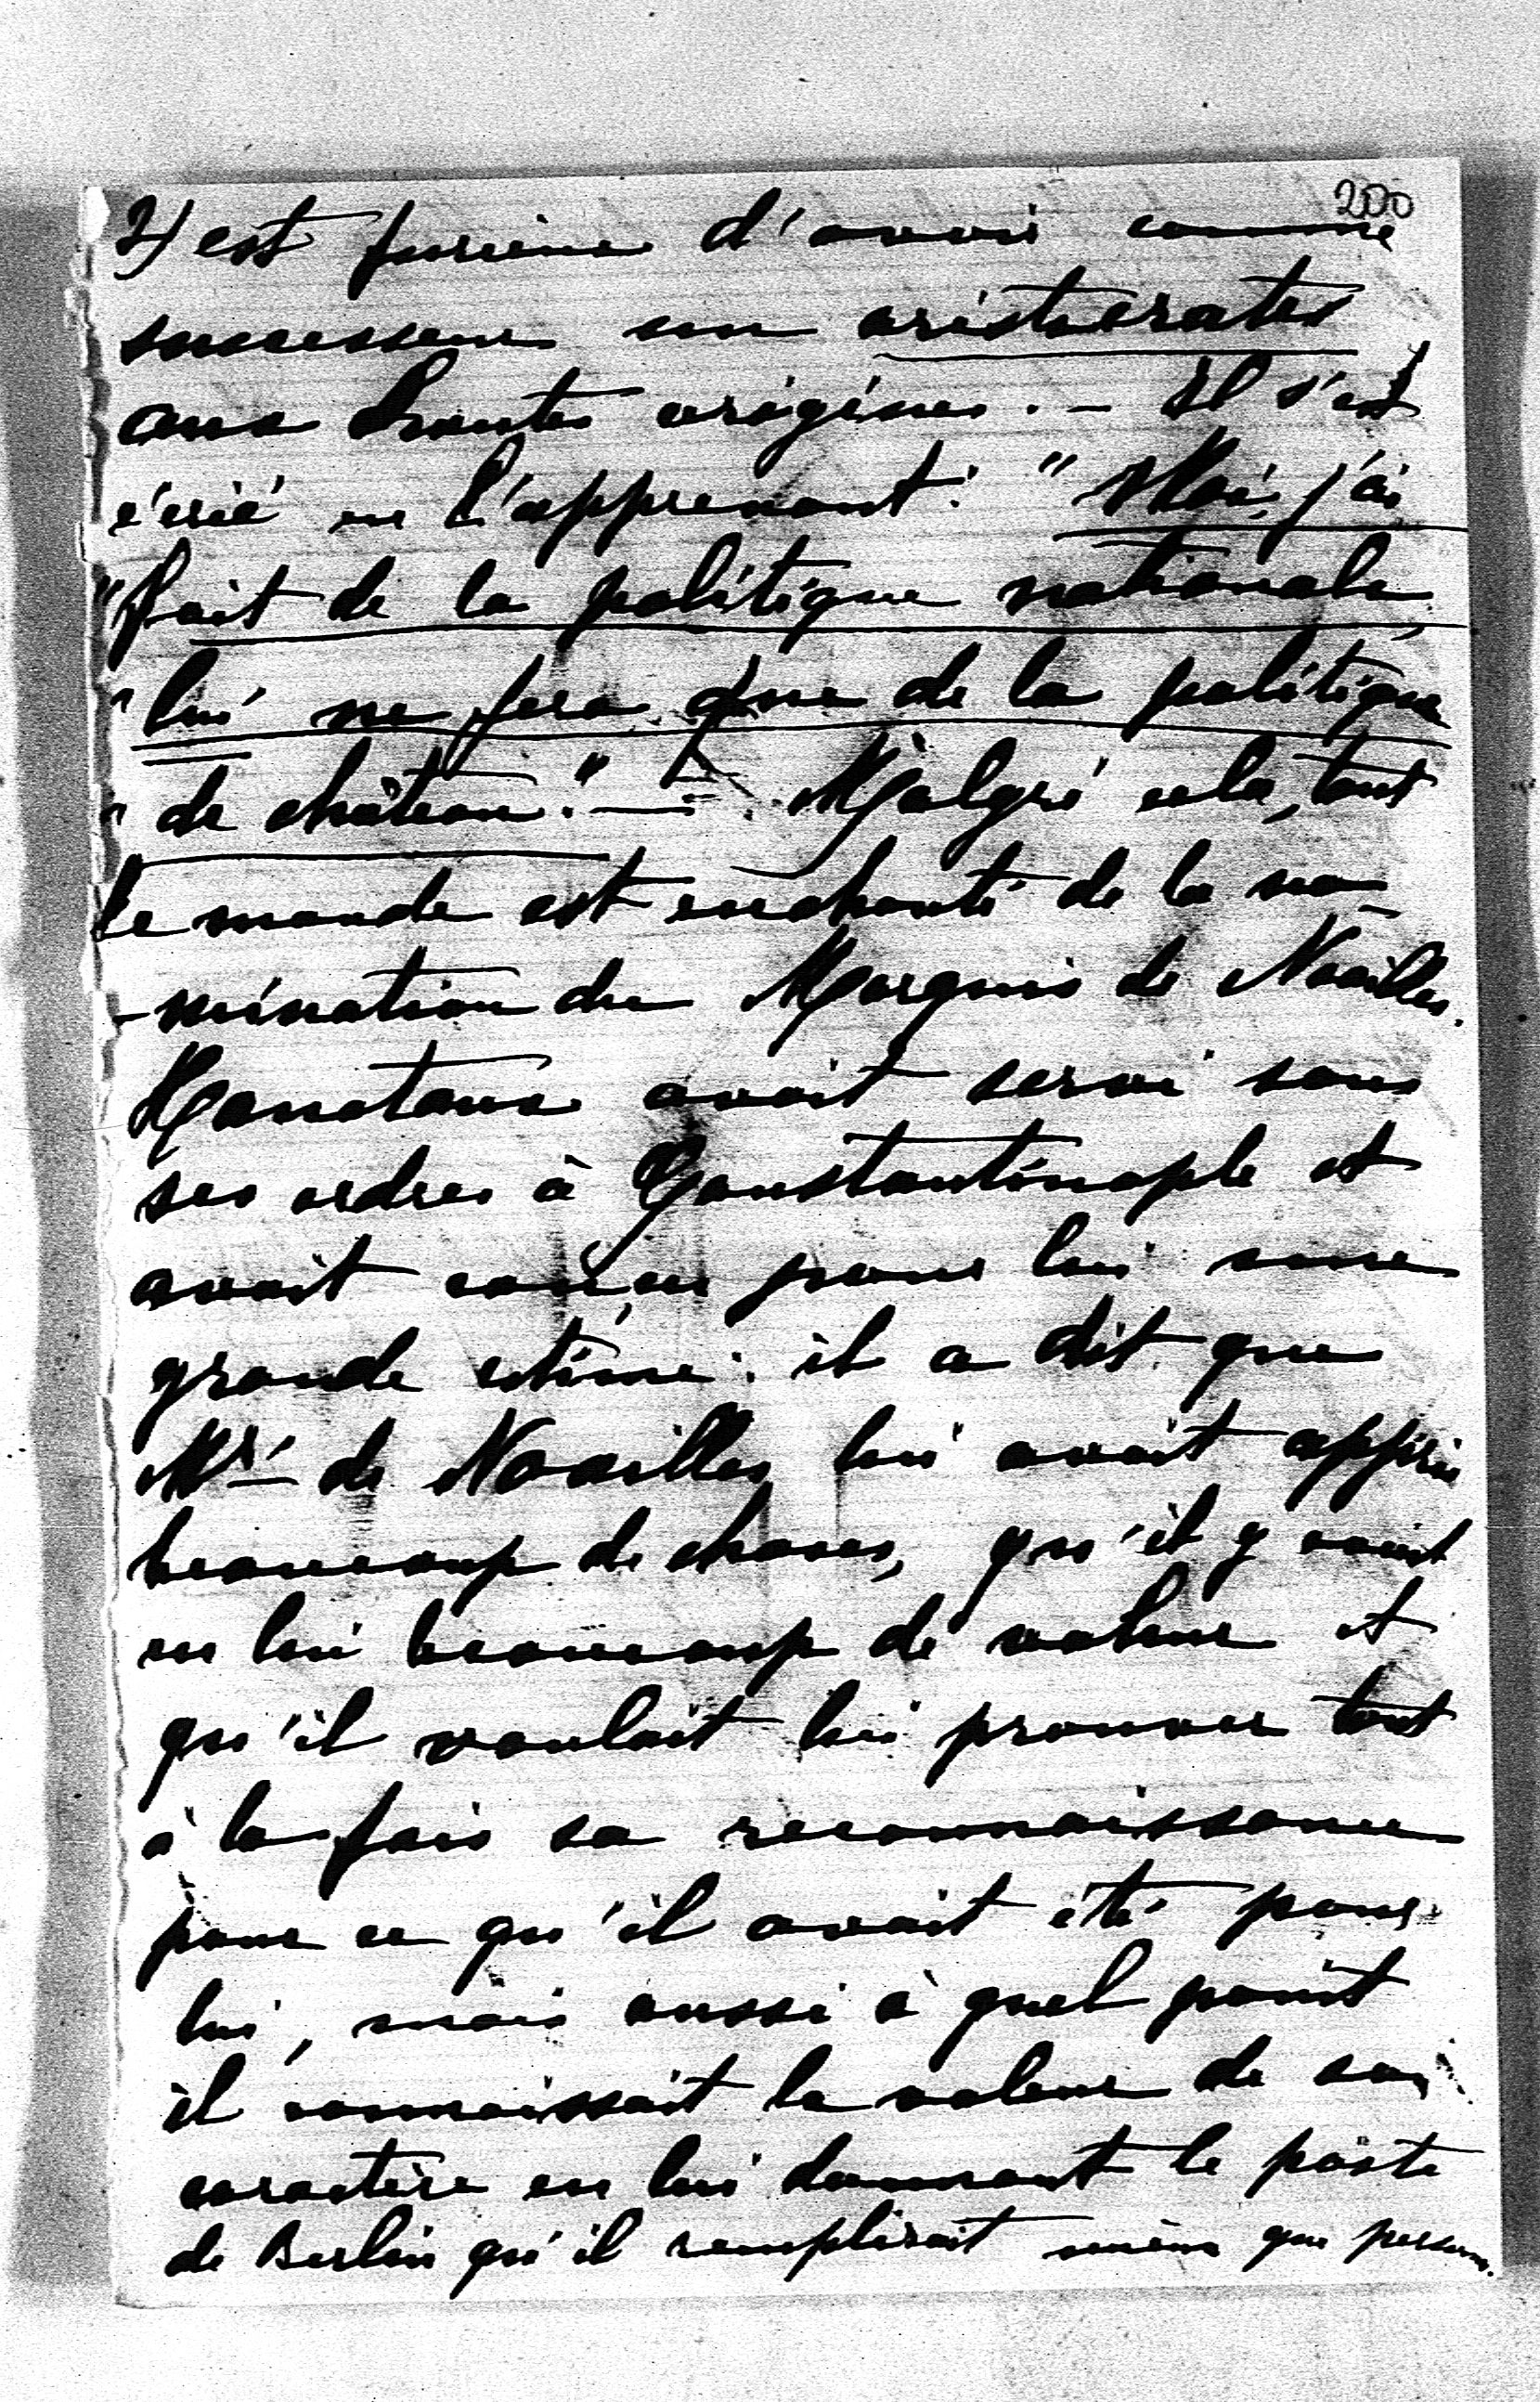 200
2) est furieux d'avoir comme
successeur un aristocrate
aux hautes origines. - Il s'est
écrié en l'apprenant: "Moi, j'ai
"fait de la politique nationale,
"lui ne fera que de la politique
"de château." - Malgré cela, tout
le monde est enchanté de la no-
-mination du Marquis de Noailles.
Hanotaux avait servi sous
ses ordres à Constantinople et
avait conçu pour lui une
grande estime: il a dit que
Mr de Noailles lui avait appris
beaucoup de choses, qu'il y avait
en lui beaucoup de valeur et
qu'il voulait lui prouver tout
à la fois sa reconnaissance
pour ce qu'il avait été pour
lui, mais aussi à quel point
il connaissait la valeur de son
caractère en lui donnant le poste
de Berlin qu'il remplirait mieux que personne.